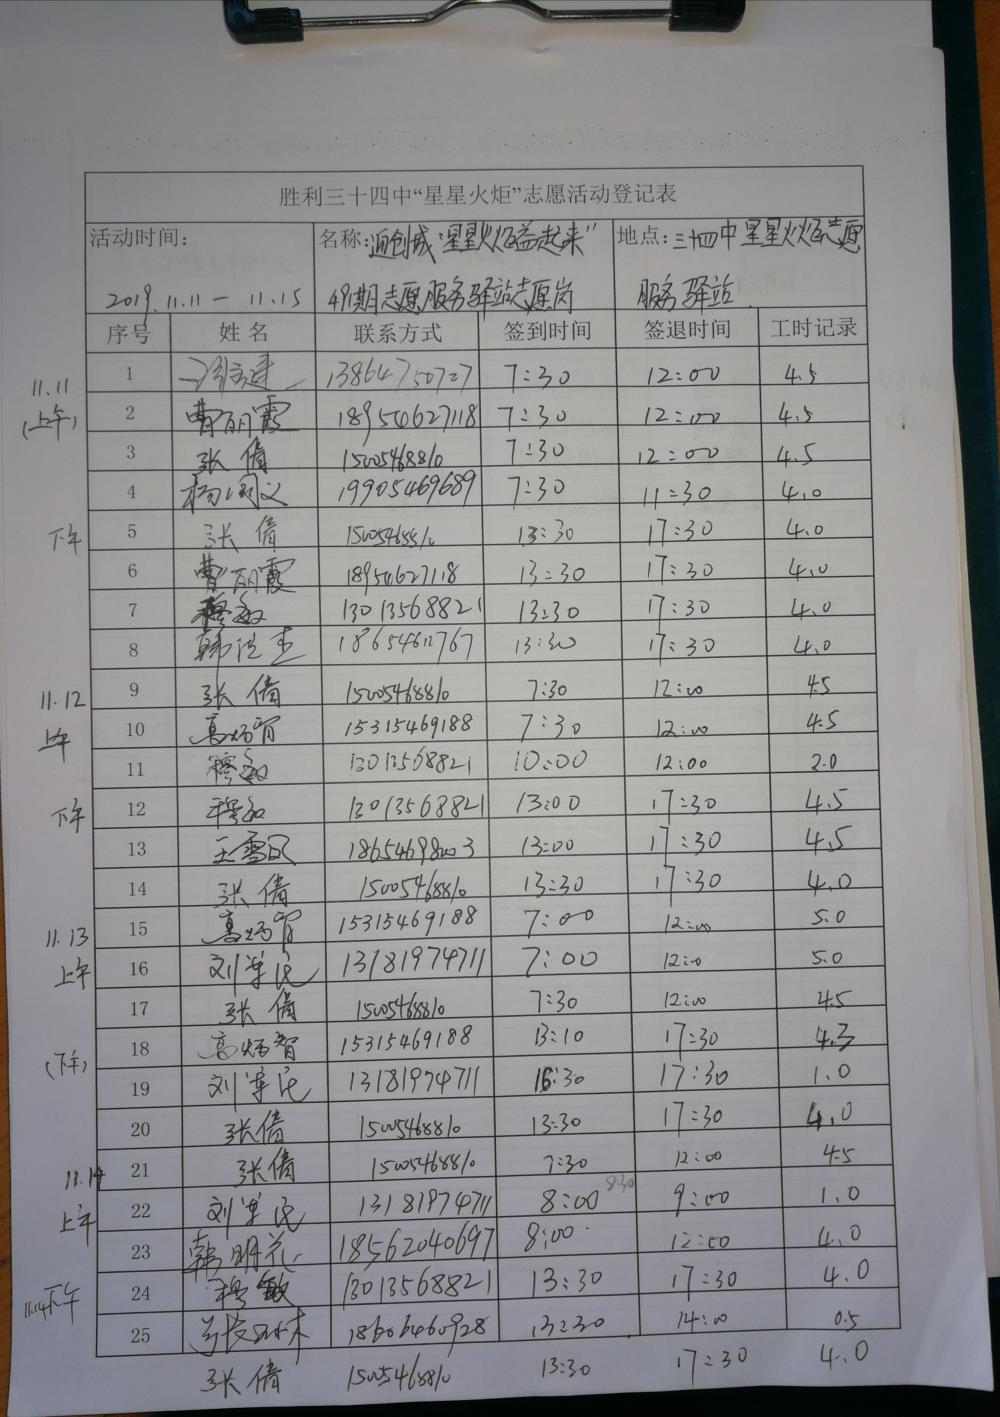 胜利三十四中“星星火炬”志愿活动登记表
活动时间： 名称：迎创城“星星火炬益起来” 地点：三十四中星星火炬志愿
2019.11.11－11.15 49期志愿服务驿站志愿岗 服务驿站
序号 姓名 联系方式 签到时间 签退时间 工时记录
11.11 1 13864750727 7:30 12:00 4.5
(上午) 2 曹丽霞 18954627118 7:30 12:00 4.5
3 张倩 15005468810 7:30 12:00 4.5
4 杨国义 19905469689 7:30 11:30 4.0
下午 5 张倩 15005468810 13:30 17:30 4.0
6 曹丽霞 18954627118 13:30 17:30 4.0
7 穆敏 13013568821 13:30 17:30 4.0
8 13:30 17:30 4.0
11.12 9 张倩 15005468810 7:30 12:00 4.5
上午 10 高炳智 15315469188 7:30 12:00 4.5
11 穆敏 13013568821 10:00 12:00 2.0
下午 12 穆敏 13013568821 13:00 17:30 4.5
13 18654698003 13:00 17:30 4.5
14 张倩 15005468810 13:30 17:30 4.0
11.13 15 高炳智 15315469188 7:00 12:00 5.0
上午 16 刘军民 13181974711 7:00 12:0 5.0
17 张倩 15005468810 7:30 12:00 4.5
(下午) 18 高炳智 15315469188 13:10 17:30 4.3
19 刘军民 13181974711 16:30 17:30 1.0
20 张倩 15005468810 13:30 17:30 4.0
11.14 21 张倩 15005468810 7:30 12:00 4.5
上午 22 刘军民 13181974711 8:00 8:30 9:00 1.0
23 韩明花 18562040697 8:00 12:00 4.0
11.14下午 24 穆敏 13013568821 13:30 17:30 4.0
25 18606460928 13:30 14:00 0.5
张倩 15005468810 13:30 17:30 4.0